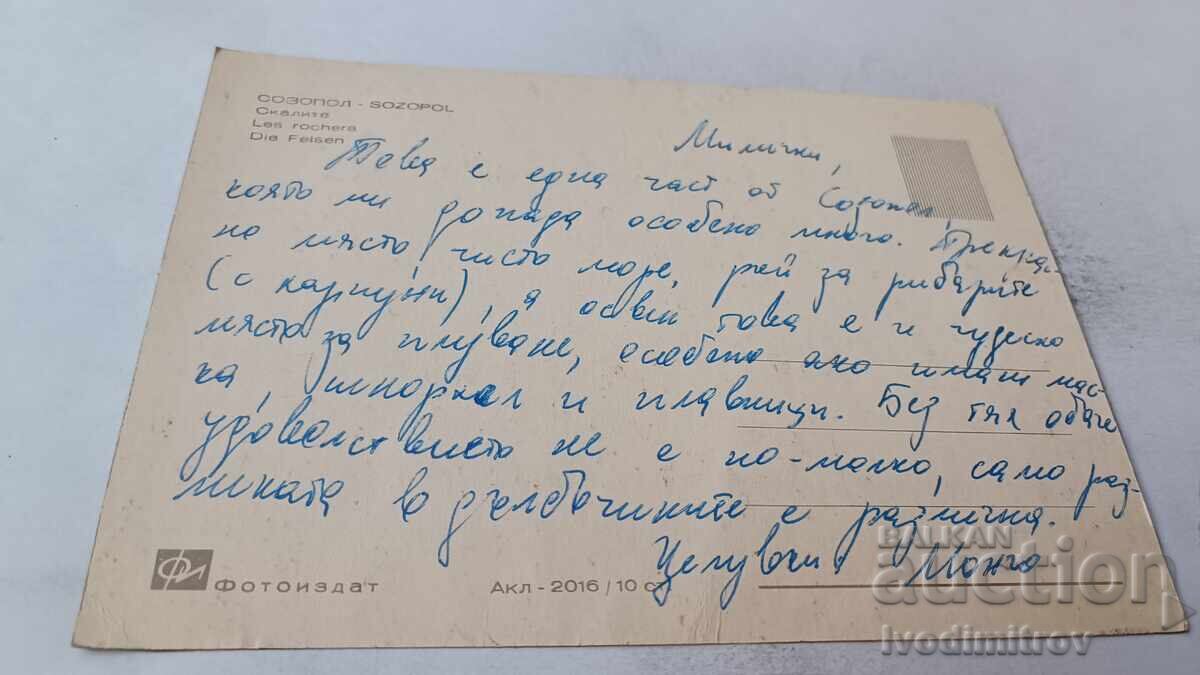 СОЗОПОЛ - SOZOPOL
Скалите
Les rochers
Die Felsen
Милички,
Това е една част от Созопол,
която ми допада особено много. Прекрас-
но място, чисто море, рай за рибарите
(с харпуни), а освен това е и чудесно
място за плуване, особено ако имаш мас-
ка, шнорхел и плавници. Без тях обаче
удоволствието не е по-малко, само раз-
ликата в дълбочините е различна.
Целувки
Фотоиздат
Акл-2016/10 ст
BALKAN
auction
Ivodimitrov